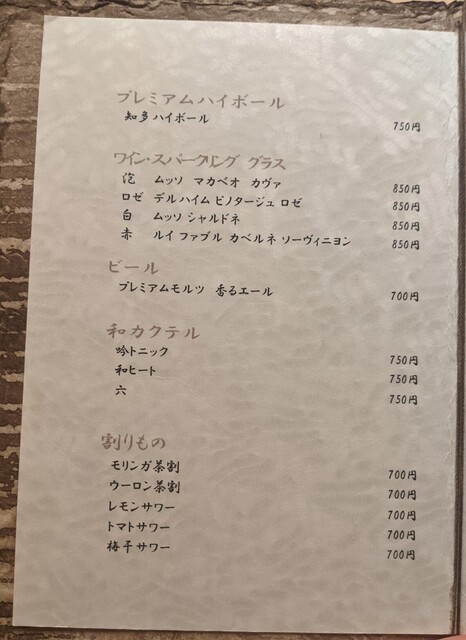 プレミアムハイボール
知多ハイボール 750円
ワイン・スパークリング グラス
泡 ムッソ マカベオ カヴァ 850円
ロゼ デルハイム ピノタージュ ロゼ 850円
白 ムッソ シャルドネ 850円
赤 ルイ ファブル カベルネ ソーヴィニヨン 850円
ビール
プレミアムモルツ 香るエール 700円
和カクテル
吟トニック 750円
和ヒート 750円
六 750円
割りもの
モリンガ茶割 700円
ウーロン茶割 700円
レモンサワー 700円
トマトサワー 700円
梅干サワー 700円